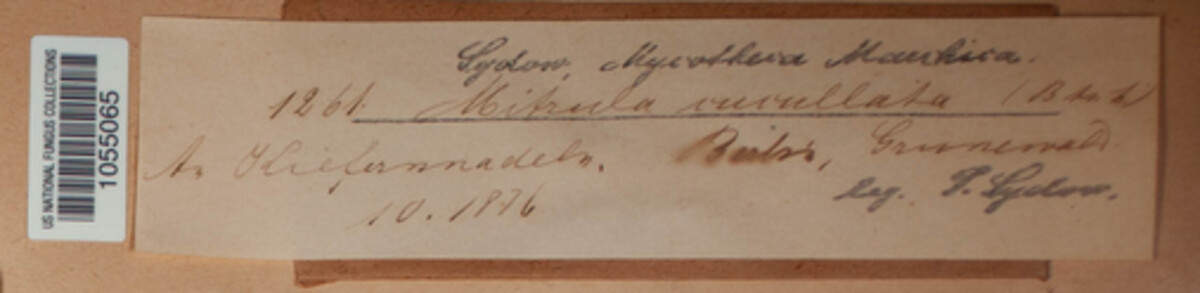 US NATIONAL FUNGUS COLLECTIONS
1055065
Sydow, Mycotheca Marchica.
1261. Mitrula cucullata (Batsch)
An Kiefernnadeln. Berlin, Grunewald
10. 1876
leg. P. Sydow.